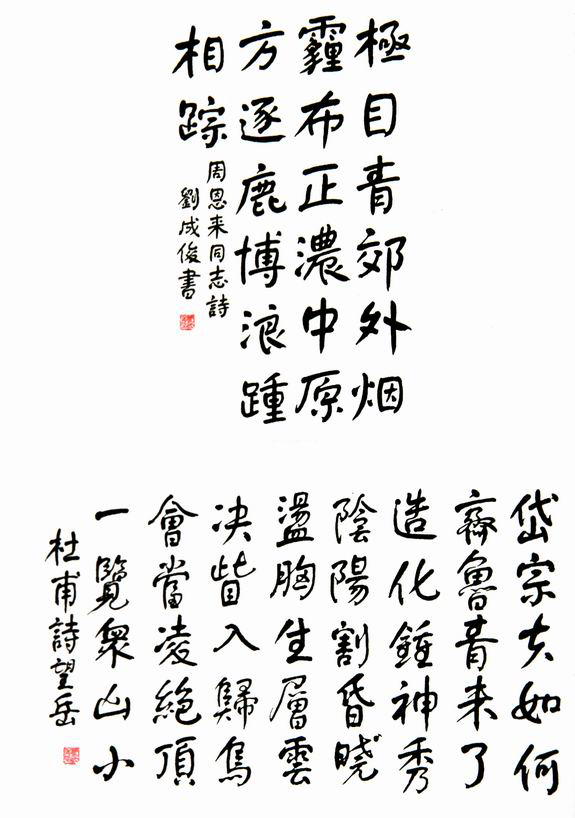 極目青郊外烟
霾布正濃中原
方逐鹿博浪踵
相踪
周恩来同志詩
劉成俊書
岱宗夫如何
齊魯青未了
造化鍾神秀
陰陽割昏曉
盪胸生層雲
决眥入歸鳥
會當凌絶頂
一覽衆山小
杜甫詩望岳